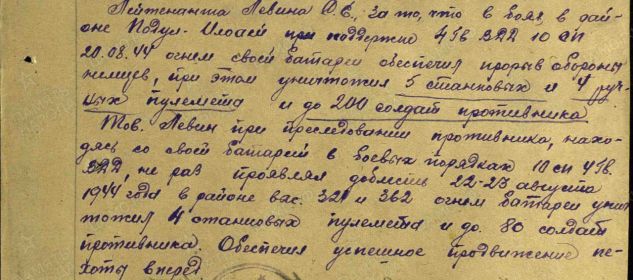 Лейтенанта Левина О.Е., за то, что в боях в рай-
оне Подул-Илоаей при поддержке 4 гв ВДД 10 сп
20.08.44 огнем своей батареи обеспечил прорыв обороны
немцев, при этом уничтожил 5 станковых и 4 руч-
ных пулемета и до 200 солдат противника.
Тов. Левин при преследовании противника, нахо-
дясь со своей батареей в боевых порядках 10 сп 4 гв.
ВДД, не раз проявлял доблесть 22-23 августа
1944 года в районе выс. 321 и 362 огнем батареи унич
тожил 4 станковых пулемета и до 80 солдат
противника. Обеспечил успешное продвижение пе-
хоты вперед